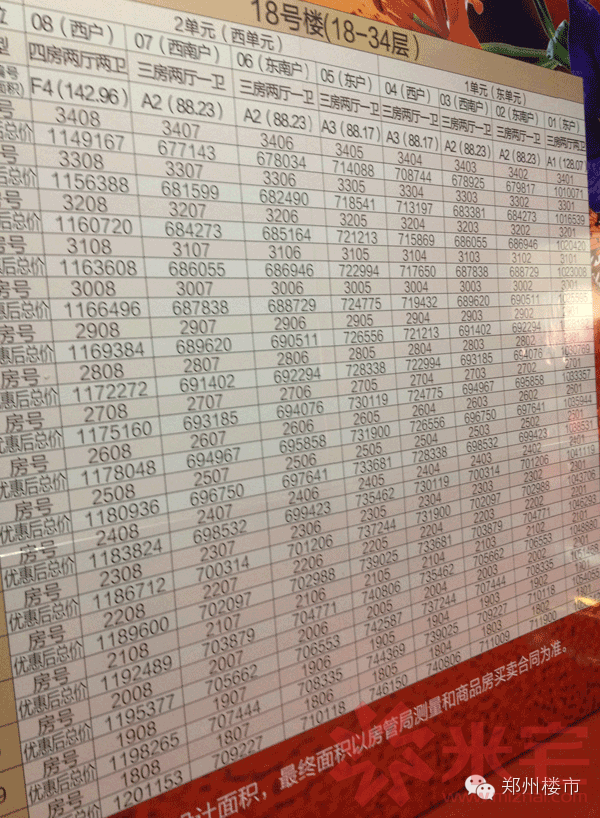 18号楼(18-34层)
位 2单元(西单元) 1单元(东单元)
08(西户) 07(西南户) 06(东南户) 05(东户) 04(西户) 03(西南户) 02(东南户) 01(东户)
型 四房两厅两卫 三房两厅一卫 三房两厅一卫 三房两厅一卫 三房两厅一卫 三房两厅一卫 三房两厅一卫 三房两厅两卫
F4(142.96) A2(88.23) A2(88.23) A3(88.17) A3(88.17) A2(88.23) A2(88.23) A1(128.07)
号 3408 3407 3406 3405 3404 3403 3402 3401
后总价 1149167 677143 678034 714088 708744 678925 679817 1010071
号 3308 3307 3306 3305 3304 3303 3302 3301
后总价 1156388 681599 682490 718541 713197 683381 684273 1016539
号 3208 3207 3206 3205 3204 3203 3202 3201
后总价 1160720 684273 685164 721213 715869 686055 686946 1020420
房号 3108 3107 3106 3105 3104 3103 3102 3101
后总价 1163608 686055 686946 722994 717650 687838 688729 1023008
房号 3008 3007 3006 3005 3004 3003 3002 3001
惠后总价 1166496 687838 688729 724775 719432 689620 690511
房号 2908 2907 2906 2905 2904 2903 2902
惠后总价 1169384 689620 690511 726556 721213 691402 692294
房号 2808 2807 2806 2805 2804 2803 2802
优惠后总价 1172272 691402 692294 728338 722994 693185 694076
房号 2708 2707 2706 2705 2704 2703 2702 2701
优惠后总价 1175160 693185 694076 730119 724775 694967 695858 1033357
房号 2608 2607 2606 2605 2604 2603 2602 2601
优惠后总价 1178048 694967 695858 731900 726556 696750 697641 1035944
房号 2508 2507 2506 2505 2504 2503 2502 2501
优惠后总价 1180936 696750 697641 733681 728338 698532 699423 1038531
房号 2408 2407 2406 2405 2404 2403 2402 2401
优惠后总价 1183824 698532 699423 735462 730119 700314 701206 1041119
房号 2308 2307 2306 2305 2304 2303 2302 2301
优惠后总价 1186712 700314 701206 737244 731900 702097 702988 1043706
房号 2208 2207 2206 2205 2204 2203 2202 2201
优惠后总价 1189600 702097 702988 739025 733681 703879 704771 1046293
房号 2108 2107 2106 2105 2104 2103 2102 2101
优惠后总价 1192489 703879 704771 740806 735462 705662 706553 1048880
房号 2008 2007 2006 2005 2004 2003 2002 2001
优惠后总价 1195377 705662 706553 742587 737244 707444 708335
房号 1908 1907 1906 1905 1904 1903 1902
优惠后总价 1198265 707444 708335 744369 739025 709227 710118
房号 1808 1807 1806 1805 1804 1803 1802
优惠后总价 1201153 709227 710118 746150 740806 711009 711900
计面积，最终面积以房管局测量和商品房买卖合同为准。
米宅
郑州楼市